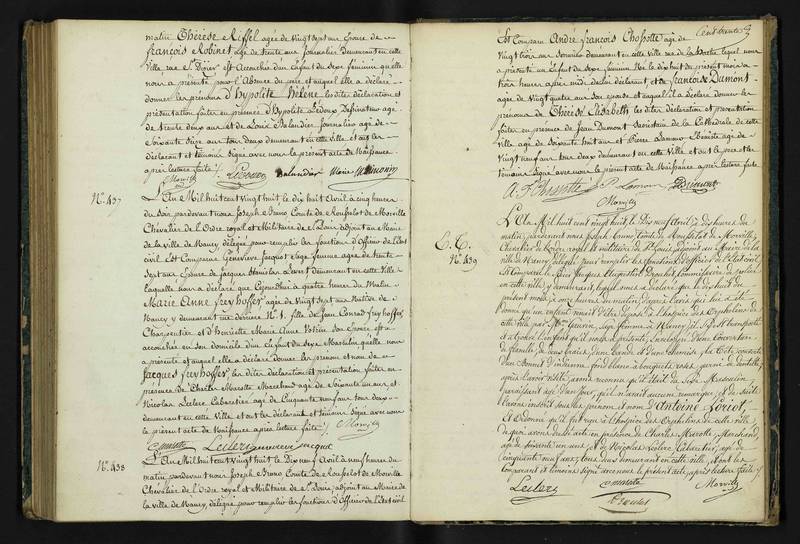 matin Thérèse Riffel agée de vingt sept ans épouse de
françois Robinet agé de trente ans journalier demeurant en cette
Ville rue St Dizier est accouchée d'un Enfant du sexe féminin qu'elle
nous a présenté pour l'absence du père et auquel elle a déclaré
donner les prénoms d'hypolite Hélène les dites déclaration et
présentation faites en présence d'hypolite Ledoux Dessinateur agé
de trente deux ans et de Louis Balandier journalier agé de
soixante dix ans tous deux demeurant en cette ville et ont les
déclarant et témoins signé avec nous le présent acte de Naissance
après lecture faite /.
Morvilly Ledoux Balandier Marie
No. 437
L'An Mil huit cent vingt huit le dix huit Avril à cinq heures
du soir pardevant nous Joseph Bruno Comte de Rousselot de Morville
Chevalier de l'Ordre royal et Militaire de St Louis adjoint au Maire
de la ville de Nancy délégué pour remplir les fonctions d'Officier de l'Etat
civil Est Comparue Geneviève Jacquot sage femme agée de trente
sept ans Epouse de Jacques Stanislas Levert demeurant en cette Ville
laquelle nous a déclaré que cejourd'hui à quatre heures du Matin
Marie Anne freyhoffer agée de vingt sept ans Native de
Nancy y demeurant rue derrière No. 1. fille de Jean Conrad freyhoffer
Charpentier et d'henriette Marie Anne son Epouse est
accouchée en son domicile d'un Enfant du sexe Masculin qu'elle nous
a présenté et auquel elle a déclaré donner les prénom et nom de
Jacques freyhoffer les dites déclaration et présentation faites en
présence de Charles Marotte Marchand agé de soixante un ans et
Nicolas Leclerc Cabaretier agé de Cinquante neuf ans tous deux
demeurant en cette Ville et ont les déclarant et témoins signé avec nous
le présent acte de Naissance après lecture faite / Morvilly
Marotte Leclerc genevieve jacquot
No. 438
L'An Mil huit cent vingt huit le Dix neuf Avril à neuf heures du
matin pardevant nous Joseph Bruno Comte de Rousselot de Morville
Chevalier de l'Ordre royal et Militaire de St Louis, adjoint au Maire de
la ville de Nancy, délégué pour remplir les fonctions d'Officier de l'Etat civil
Cent trente
Est Comparu André françois Chossotte agé de
vingt trois ans demeurant en cette ville rue de la lequel nous
a présenté un Enfant du sexe féminin Né le dix huit du présent mois à
trois heures après midi de lui déclarant et de françoise Dumont
agée de vingt quatre ans son épouse et auquel il a déclaré donner les
prénoms de Thérèse Elisabeth les dites déclaration et présentation
faites en présence de Jean Dumont Sacristain de la Cathédrale de cette
ville agé de soixante huit ans et Pierre Lamour Ebéniste agé de
vingt neuf ans tous deux demeurant en cette ville et ont le père et les
témoins signé avec nous le présent acte de Naissance après lecture faite
A. F. Chossotte P. Lamour Dumont
Morvilly
E. T.
No. 439
L'An Mil huit cent vingt huit, le Dix neuf Avril à dix heures du
matin, pardevant nous Joseph Bruno Comte de Rousselot de Morville,
Chevalier de l'ordre royal et militaire de St Louis, adjoint au Maire de la
ville de Nancy, délégué pour remplir les fonctions d'officier de l'Etat civil
Est Comparu le Sieur Jacques Augustin Commissaire de police
en cette ville, y demeurant, lequel nous a déclaré que le dix huit du
présent mois à onze heures du matin, d'après l'avis qui lui a été
donné qu'un enfant venait d'être déposé à l'hospice des Orphelins de
cette ville, par Mme sage femme à Nancy, il s'y est transporté
et a trouvé l'enfant qu'il nous a présenté, enveloppé d'une couverture
de flanelle, de deux draps, d'une bande et d'une chemise le tout
d'un bonnet d'indienne fond blanc à bouquets roses, garni de dentelle,
après l'avoir visité, avons reconnu qu'il était du sexe Masculin
paraissant agé d'un jour, qu'il n'avait aucune remarque, et de suite
l'avons inscrit sous les prénom et nom d'Antoine Loriot,
et ordonné qu'il fut remis à l'hospice des Orphelins de cette ville
de quoi avons dressé acte en présence de Charles Marotte Marchand,
agé de soixante un ans et de Nicolas Leclerc Cabaretier, agé de
cinquante neuf ans, tous deux demeurant en cette ville, et ont les
comparant et témoins signé avec nous le présent acte, après lecture faite /
Leclerc Marotte Morvilly